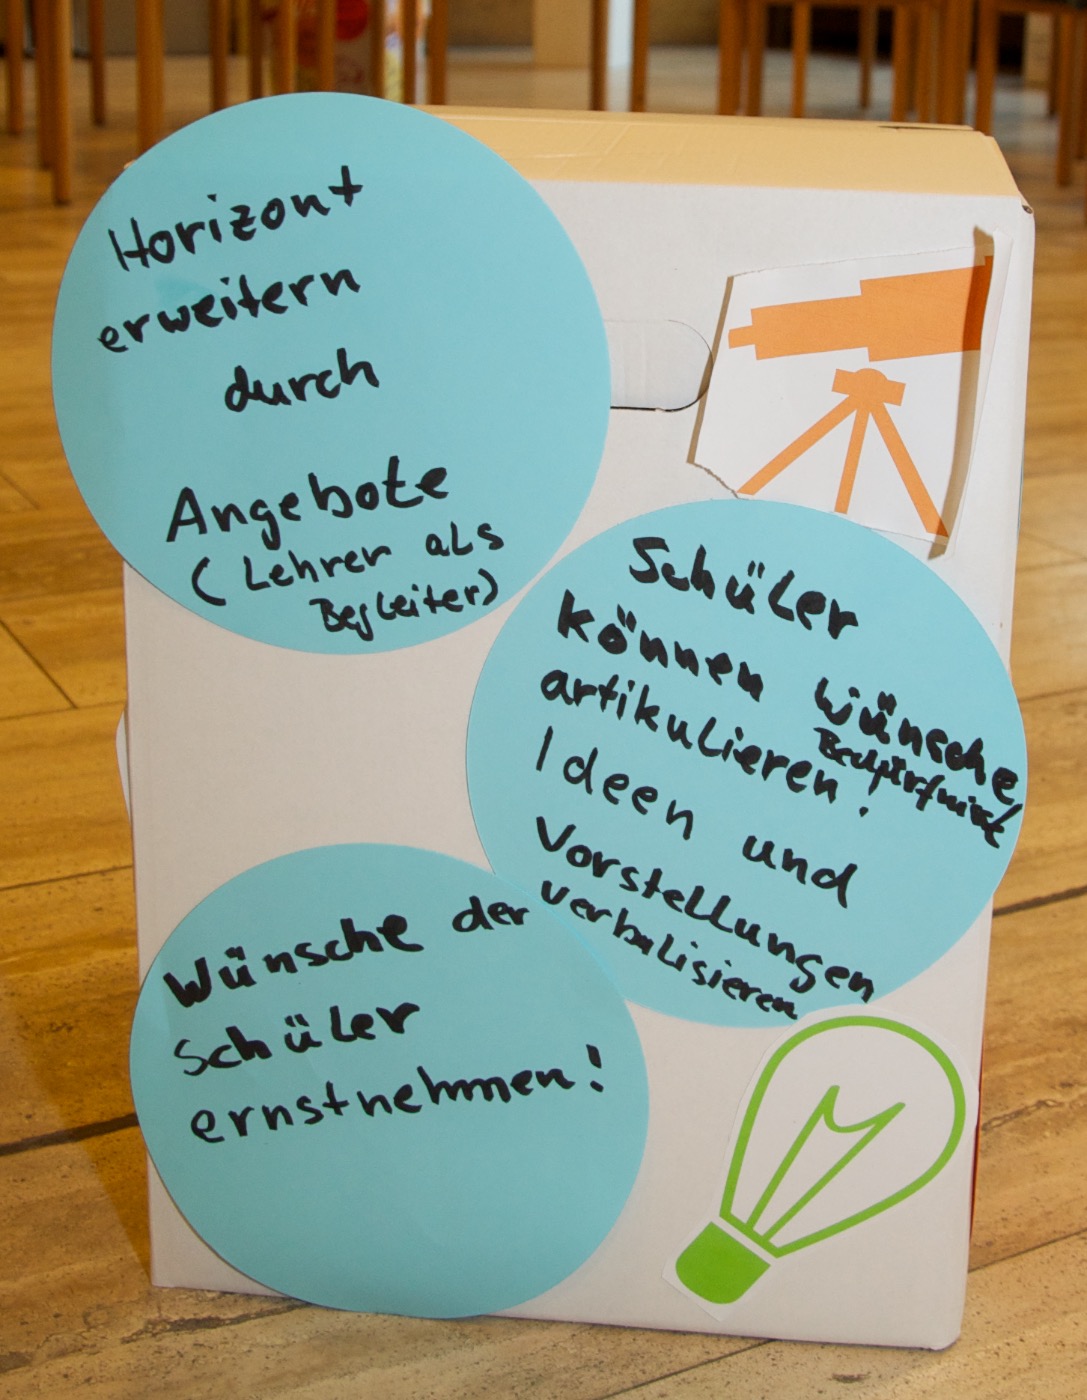 Horizont
erweitern
durch
Angebote
(Lehrer als
Begleiter)
Schüler
können Wünsche
Bedürfnisse
artikulieren!
Ideen und
Vorstellungen
verbalisieren
Wünsche der
Schüler
ernstnehmen!